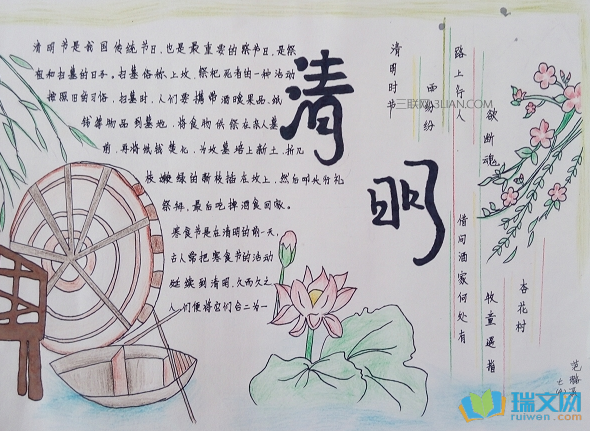 清明节是我国传统节日,也是最重要的祭节日,是祭
祖和扫墓的日子。扫墓俗称上坟,祭祀死者的一种活动
按照旧的习俗,扫墓时,人们要携带酒食果品,纸
钱等物品到墓地,将食物供祭在亲人墓
前,再将纸钱焚化,为坟墓培上新土,折几
枝嫩绿的新枝插在坟上,然后叩头行礼
祭拜,最后吃掉酒食回家。
寒食节是在清明的前一天,
古人常把寒食节的活动
延续到清明,久而久之
人们便将它们合二为一
清明
清明时节
雨纷纷
路上行人
欲断魂
借问酒家何处有
牧童遥指
杏花村
三联网3LIAN.COM
瑞文网
ruiwen.com